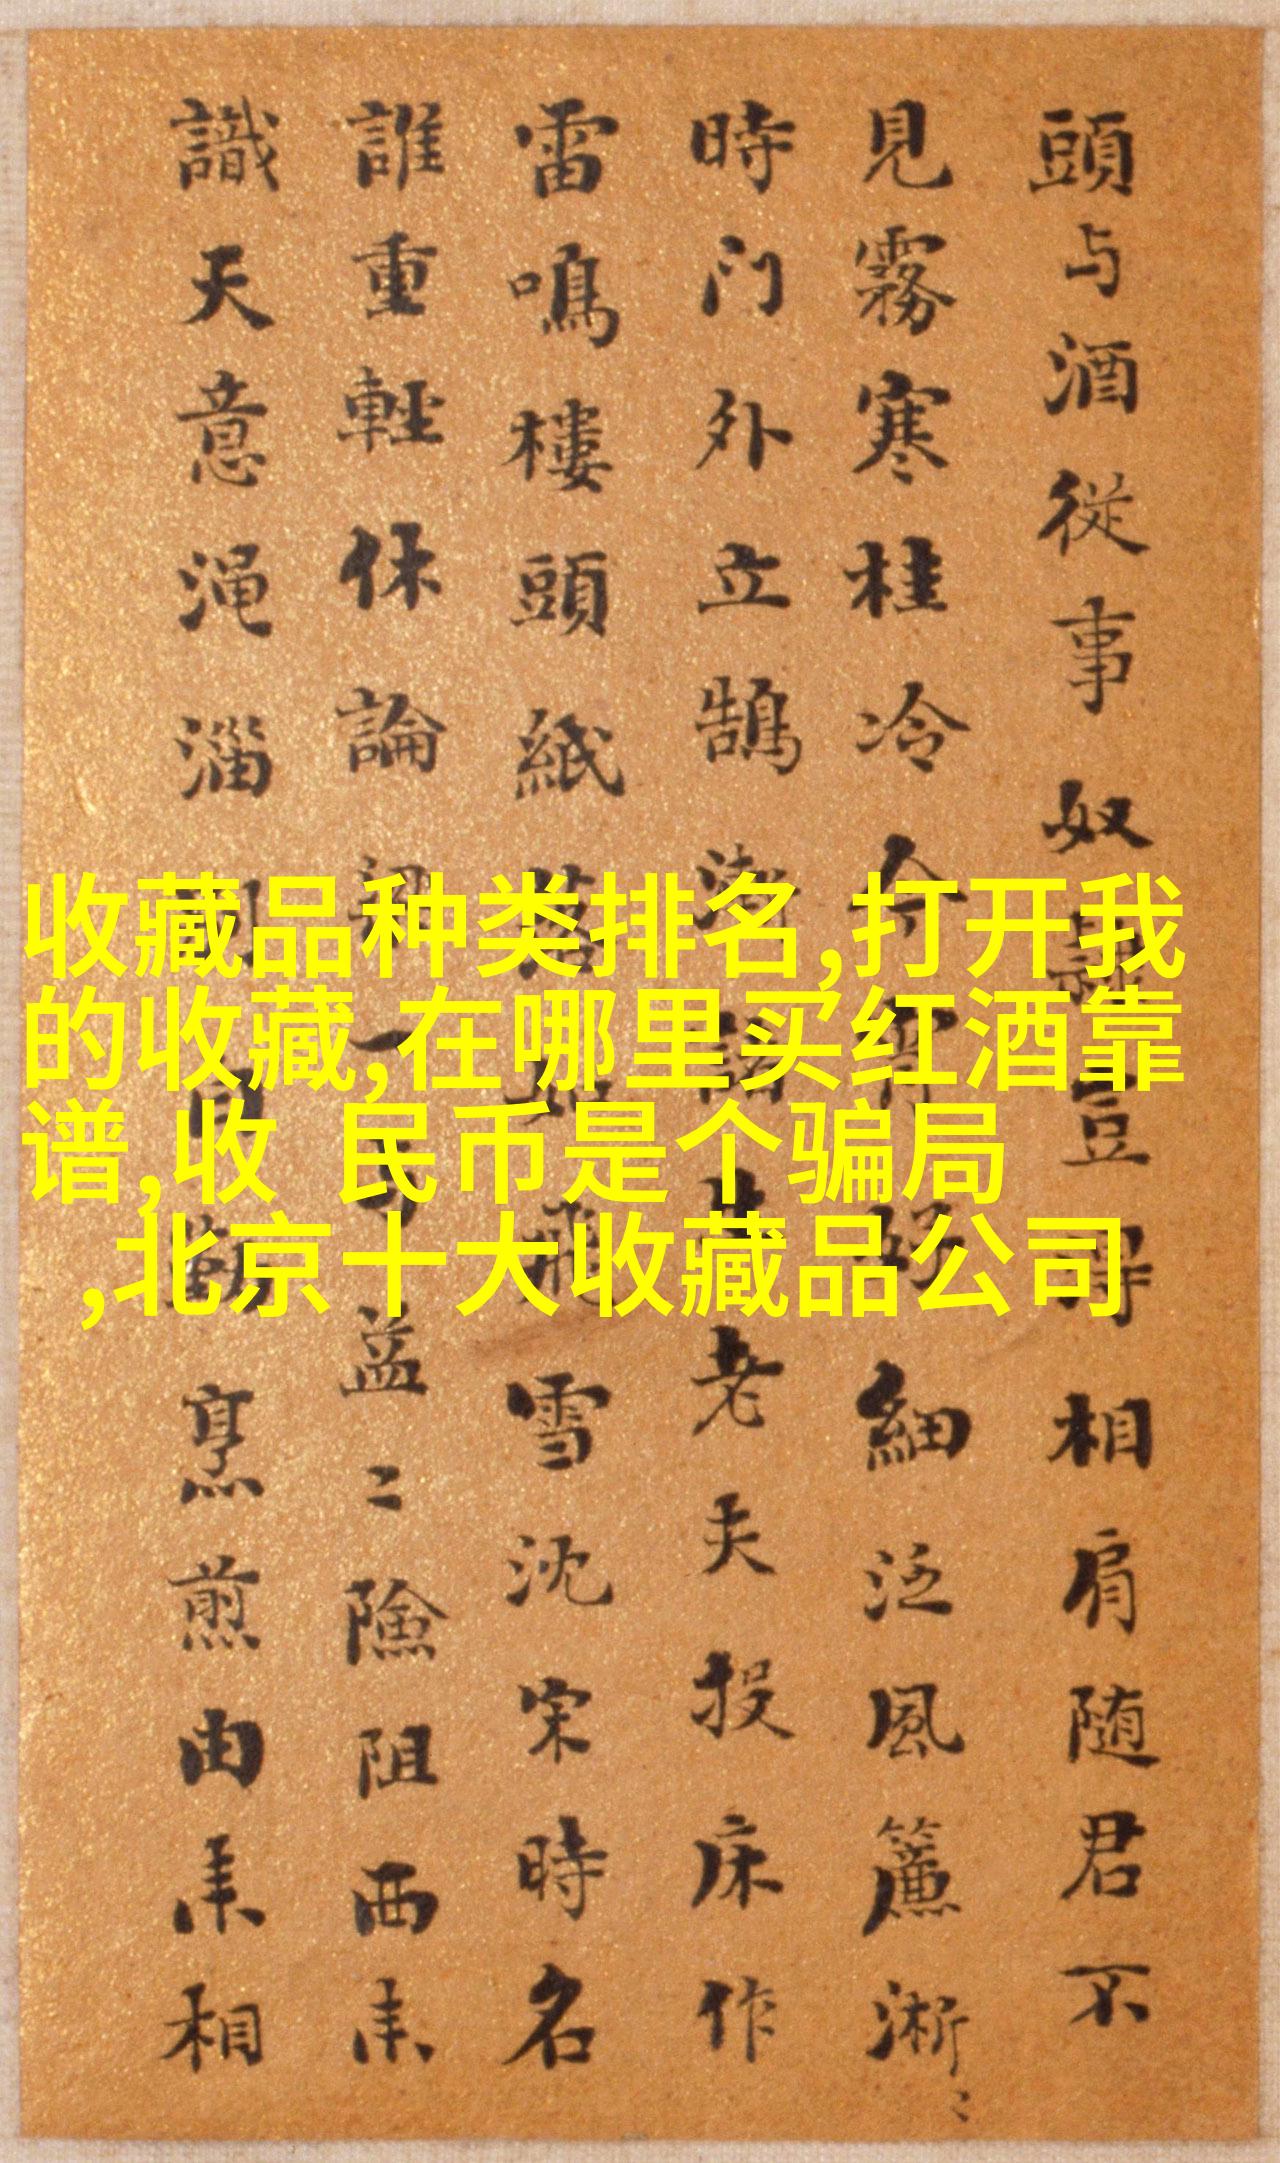 頭与酒從事奴星豆得相肩随君不
見霧寒桂冷令宵好細泛風簾淅〻
時门外立鵠渐老夫投床作
雷鳴樓頭紙落如飛雪沈宋時名
誰重輕休論一可益〻險阻西来
識天意渑淄烹煎由来相
收藏品种类排名,打开我
的收藏,在哪里买红酒靠
谱,收 民币是个骗局
,北京十大收藏品公司